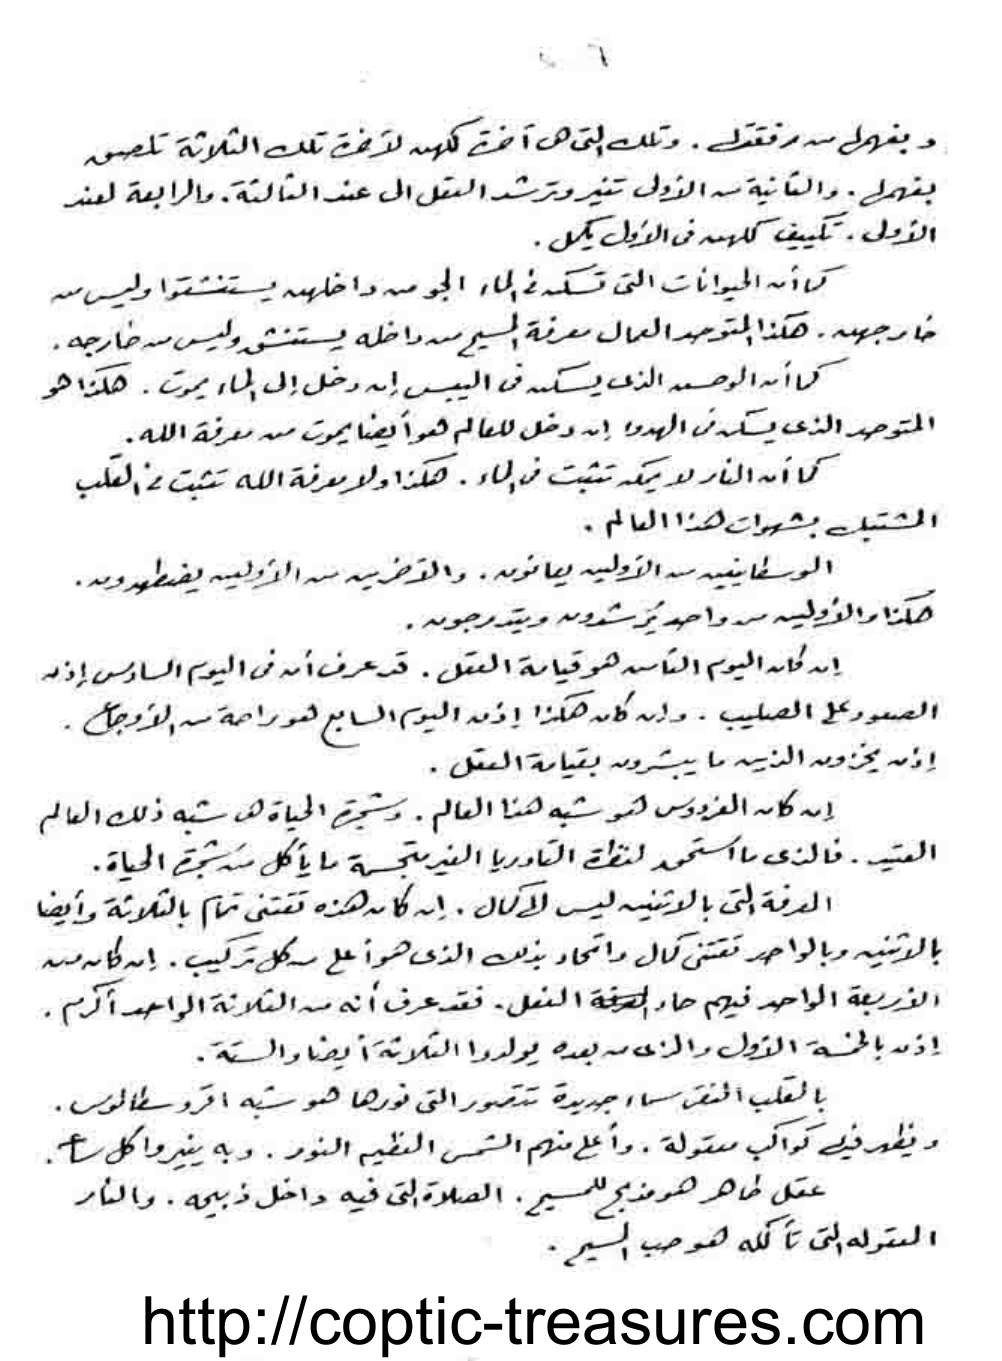 و بفهمك من مرفقتك . وتلك التى هى آخرة كلهن لآخرة تلك الثلاثة تلصق
بفهمك . والثانية من الأولى تنير وترشد العقل الى عند الثالثة . والرابعة لعند
الأولى . تكييف كلهن فى الأول يكمل .
كما أن الحيوانات التى تسكن فى الماء الجو من داخلهن يستنشقوا وليس من
خارجهن . هكذا المتوحد العمال معرفة المسيح من داخله يستنشق وليس من خارجه .
كما أن الوحش الذى يسكن فى اليبس إن دخل إلى الماء يموت . هكذا هو
المتوحد الذى يسكن فى الهدوا إن دخل للعالم هو أيضا يموت من معرفة الله .
كما أن النار لا يمكن تثبت فى الماء . هكذا ولا معرفة الله تثبت فى القلب
المشتبك بشهوات هذا العالم .
الوسطانيين من الأولين يعانون . والآخرين من الأولين يضطهدون .
هكذا والأولين من واحد يُرشدون ويتدرجون .
إن كان اليوم الثامن هو قيامة العقل . قد عرف أن فى اليوم السادس إذن
الصعود على الصليب . وإن كان هكذا إذن اليوم السابع هو راحة من الأوجاع .
إذن يخزون الذين ما يبشرون بقيامة العقل .
إن كان الفردوس هو شبه هذا العالم . وشجرة الحياة هى شبه ذلك العالم
العتيد . فالذى ما استحق لنظرة التاوريا الغير متجسمة ما يأكل من شجرة الحياة .
المعرفة التى بالاثنين ليس لها كمال . إن كان هذه تقتنى تمام بالثلاثة وأيضا
بالاثنين وبالواحد تقتنى كمال واتحاد بذلك الذى هو أعلى من كل تركيب . إن كان من
الأربعة الواحد فيهم حاد العقل . فقد عرف أنه من الثلاثة الواحد أكرم .
إذن بالخمسة الأول والذى من بعده يولدوا الثلاثة أيضا والستة .
بالقلب النقى سماء جديدة تتصور التى نورها هو شبه اقروسطالوس .
ويظهر فيها كواكب معقولة . وأعلى منهم الشمس العظيم النور . وبه ينيروا كل ساعة .
عقل طاهر هو مذبح للمسيح . الصلاة التى فيه داخل ذبيحه . والنار
المعقوله التى تأكله هو حب المسيح .
http://coptic-treasures.com